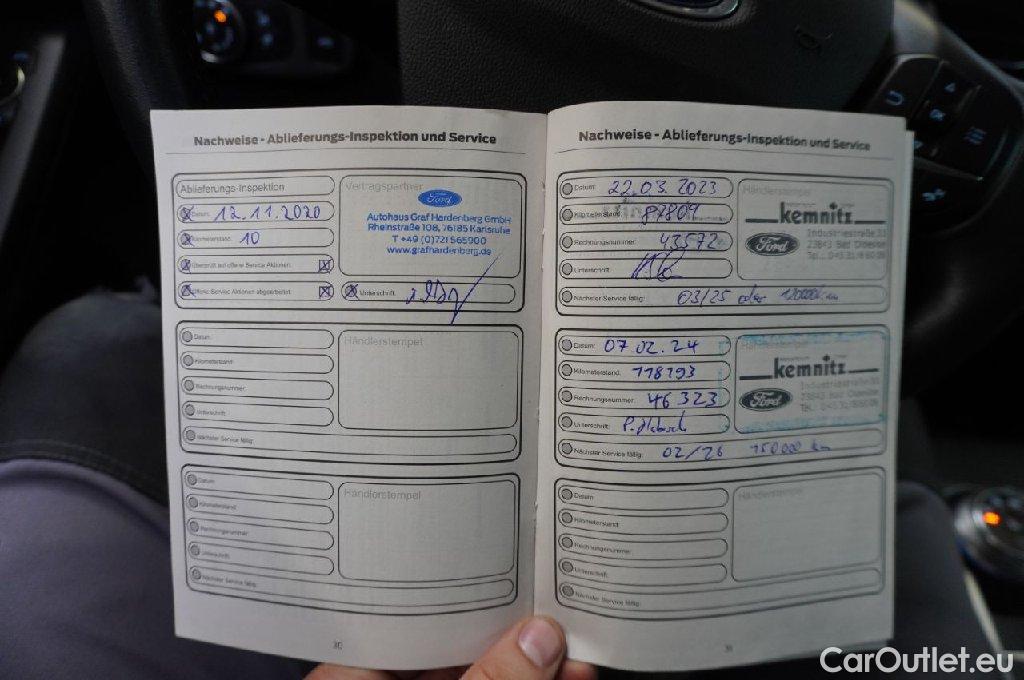 Nachweise - Ablieferungs-Inspektion und Service
Ablieferungs-Inspektion
Datum: 12.11.2020
Kilometerstand: 10
Überprüft auf offene Service Aktionen:
Offene Service Aktionen abgearbeitet:
Vertragspartner
Ford
Autohaus Graf Hardenberg GmbH
Rheinstraße 108, 76185 Karlsruhe
T +49 (0)721 565900
www.grafhardenberg.de
Unterschrift:
Datum:
Kilometerstand:
Rechnungsnummer:
Unterschrift:
Nächster Service fällig:
Händlerstempel
Datum:
Kilometerstand:
Rechnungsnummer:
Unterschrift:
Nächster Service fällig:
Händlerstempel
30
Nachweise - Ablieferungs-Inspektion und Service
Datum: 22.03.2023
Kilometerstand: 87809
Rechnungsnummer: 43572
Unterschrift:
Nächster Service fällig: 03/25 oder 120000 km
Händlerstempel
kemnitz
Ford
Industriestraße 33
23843 Bad Oldesloe
Datum: 07.02.24
Kilometerstand: 118793
Rechnungsnummer: 46323
Unterschrift:
Nächster Service fällig: 02/26 150000 km
Händlerstempel
kemnitz
Ford
Industriestraße 33
23843 Bad Oldesloe
Datum:
Kilometerstand:
Rechnungsnummer:
Unterschrift:
Nächster Service fällig:
Händlerstempel
31
OK
CarOutlet.eu